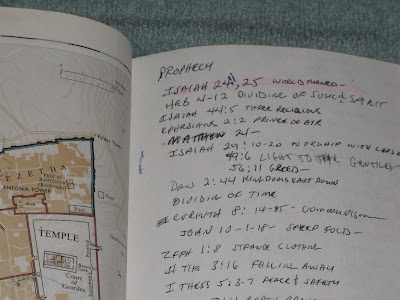 EZETHA
ANTONIA TOWER
TEMPLE
Court of
Gentiles
PROPHECY
ISAIAH 24, 25 WORLD TURNED-
HEB 4-12 DIVIDING OF SOUL & SPIRIT
ISAIAH 44:5 THREE RELIGIOUS
EPHESIANS 2:2 PRINCE OF AIR
MATTHEW 24-
ISAIAH 29:10-20 WORSHIP WITH LIPS
49:6 LIGHT TO THE GENTILES
56:11 GREED-
DAN 2:44 KINGDOMS CAST DOWN
DIVIDING OF TIME
8:14-25- COMMUNISM
JOHN 10-1-18- SHEEP FOLD-
ZEPH 1:8 STRANGE CLOTHING
II TIM 3:16 FALLING AWAY
I THESS 5:3-7 PEACE & SAFETY